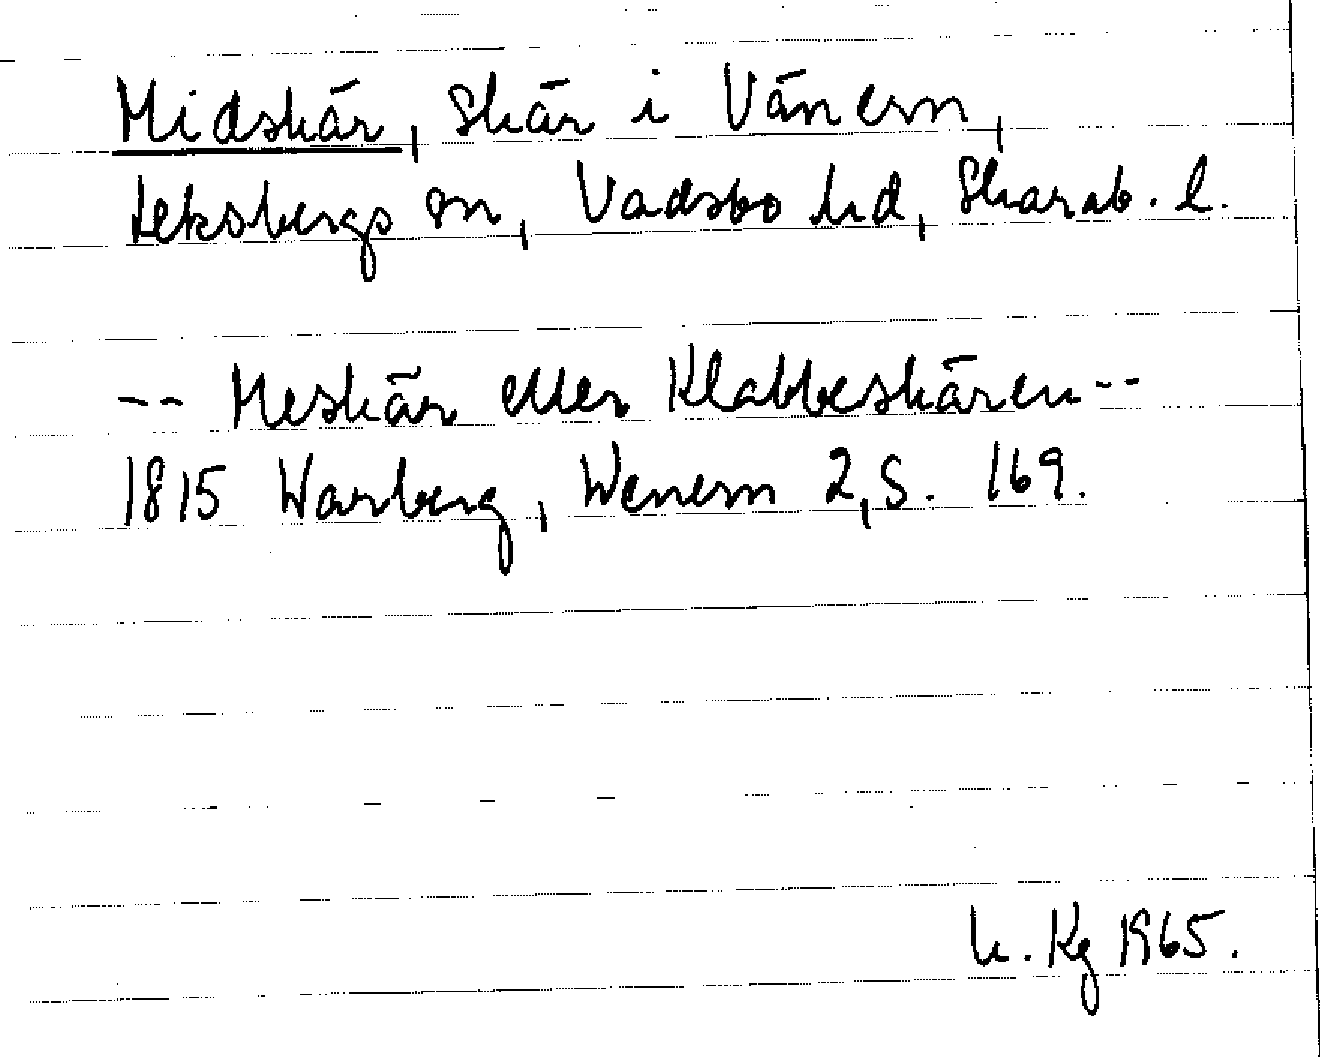 Midskär, Skär i Vänern,
Leksbergs sn, Vadsbo hd, Skarab. l.
-- Meskär eller Klabbeskären --
1815 Warberg, Wenern 2, S. 169.
Kg 1965.